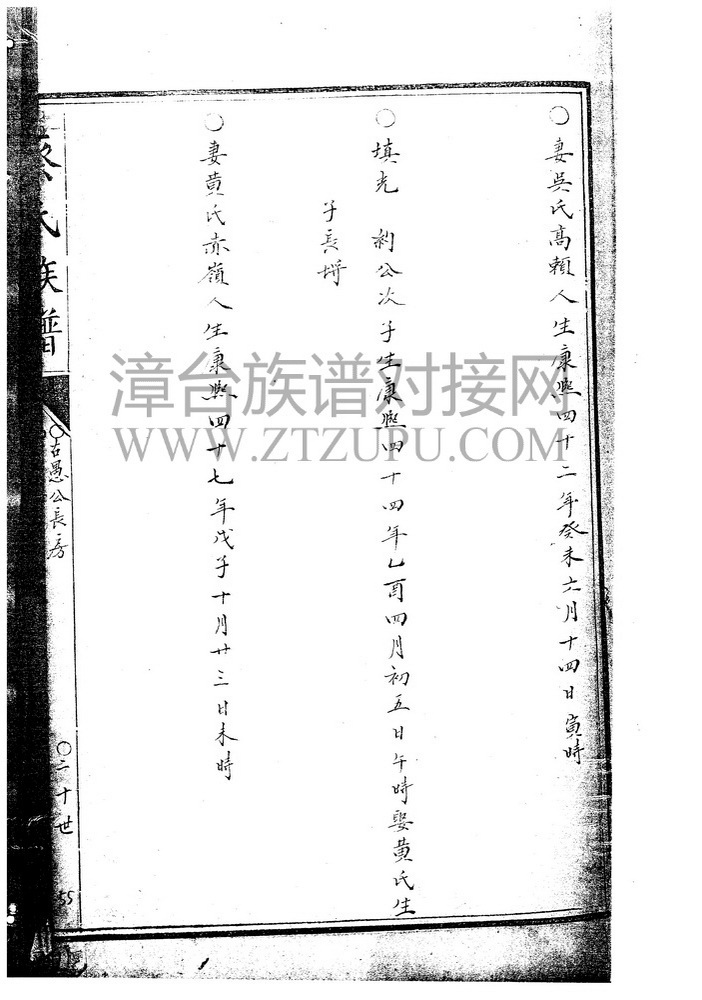 ○妻吳氏高賴人生康熙四十二年癸未六月十四日寅時
○填光 利公次子生康熙四十四年乙酉四月初五日午時娶黃氏生
子長
○妻黃氏赤嶺人生康熙四十七年戊子十月廿三日未時
氏族譜
○古愚公長房
○二十世
55
漳台族谱对接网
WWW.ZTZUPU.COM